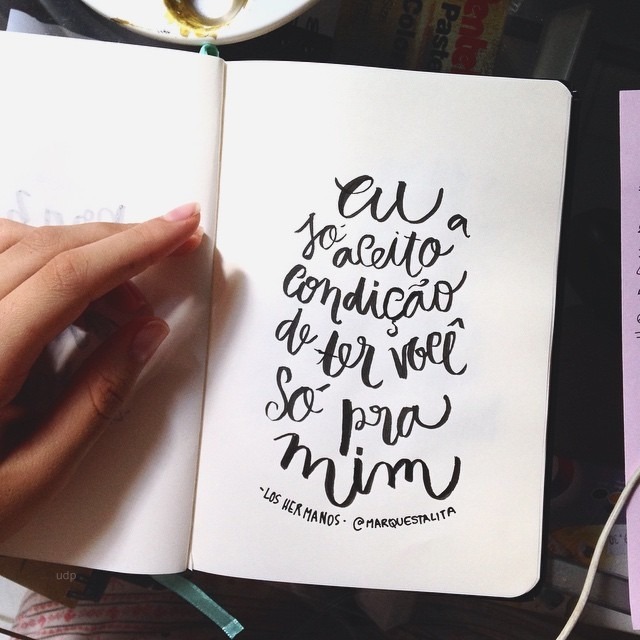 eu
só aceito a
condição
de ter você
Só pra
mim
-LOS HERMANOS· @MARQUESTALITA
udp